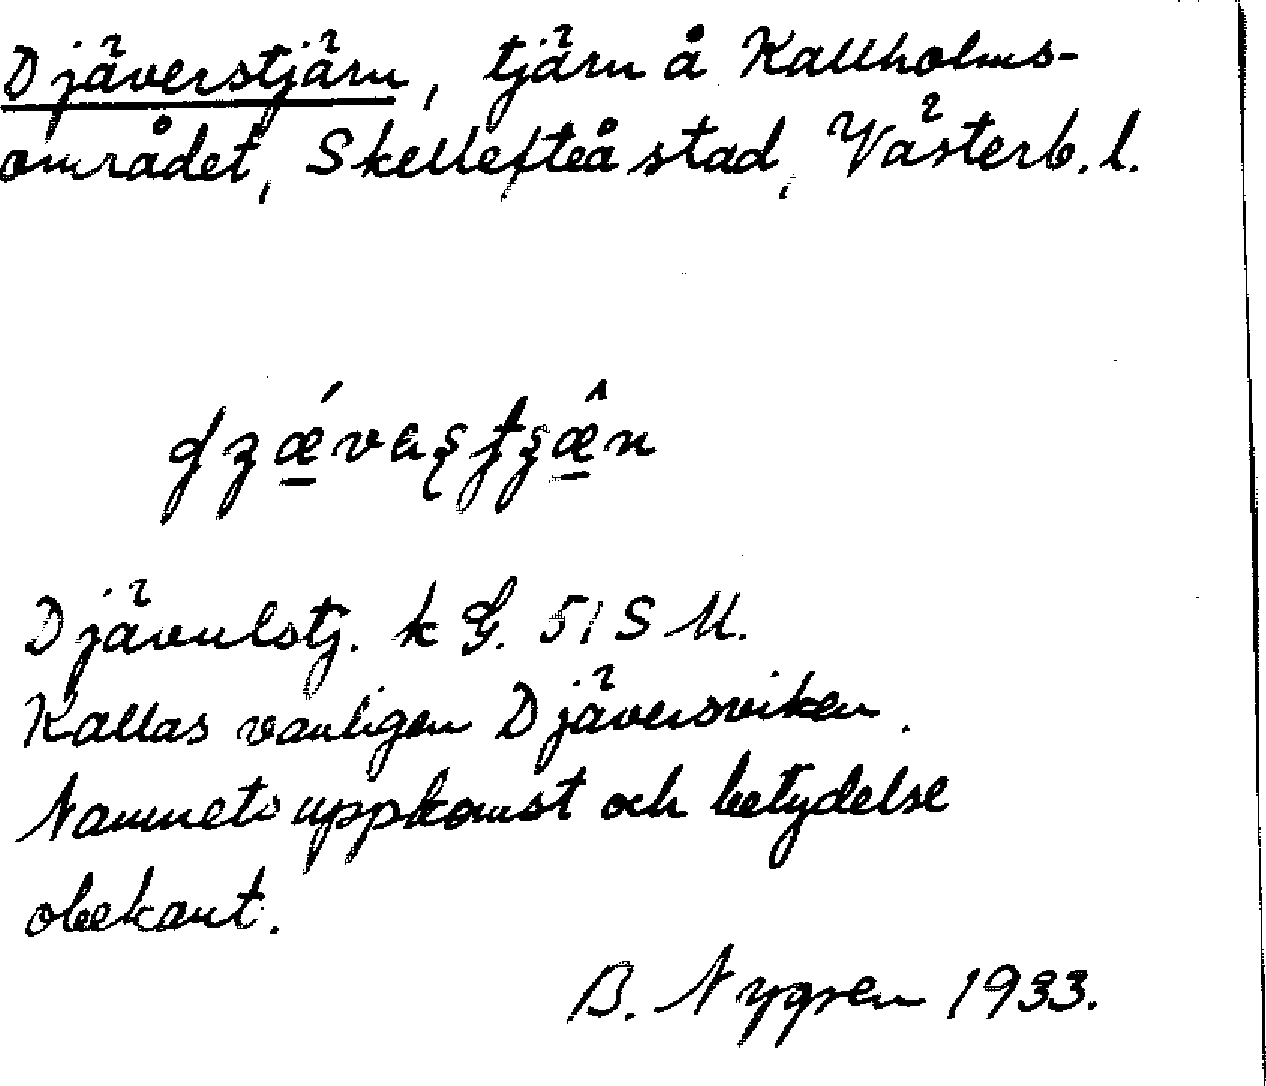 Djäverstjärn, tjärn å Kallholms-
området, Skellefteå stad, Västerb. l.
Djävulstj. k G. 51 S M.
Kallas vanligen Djäversviken.
Namnets uppkomst och betydelse
obekant.
B. Nygren 1933.